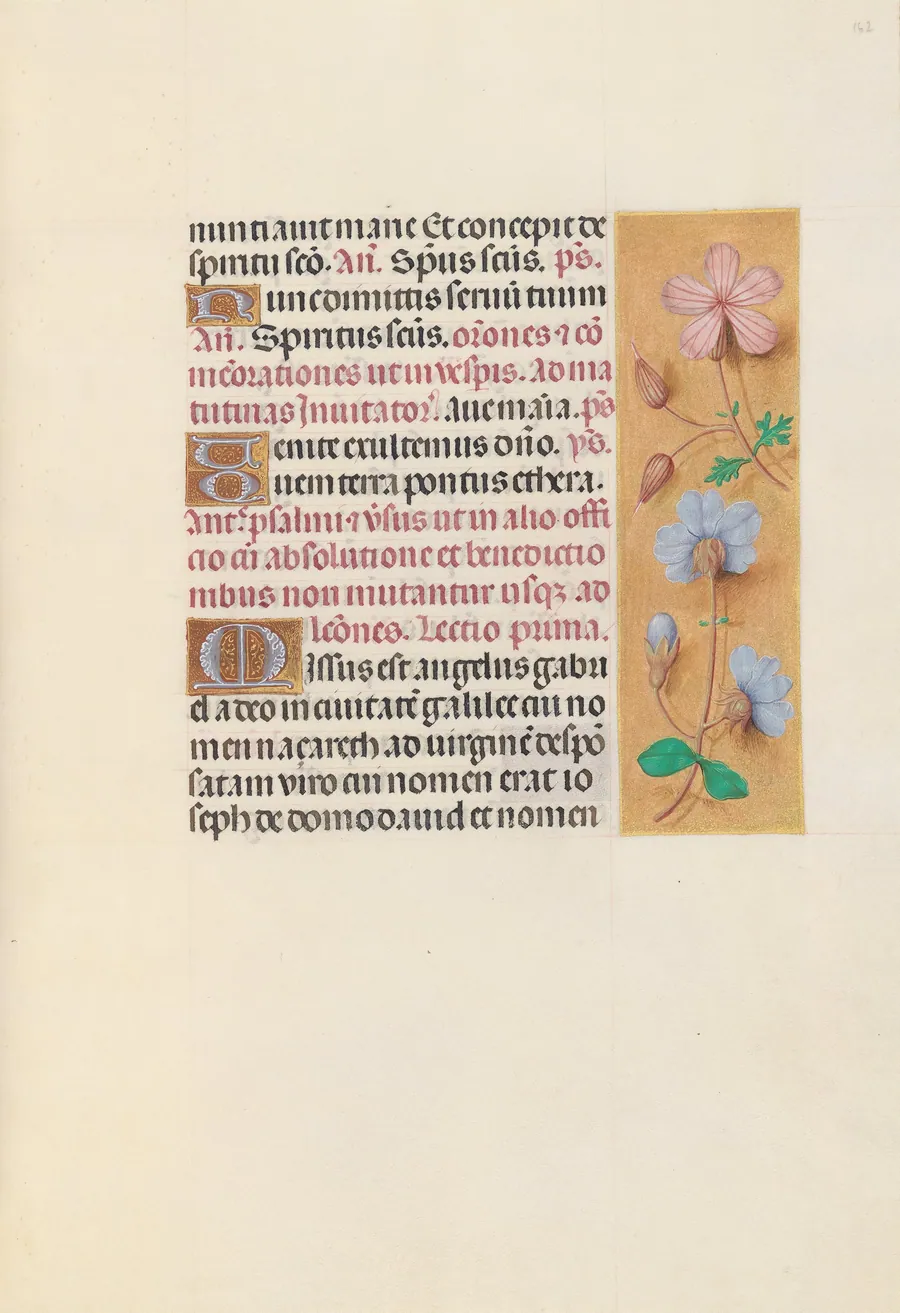 162
nuntiauit marie Et concepit de
spiritu scō. Añ. Sp̄us sc̄us. p̄s.
Nunc dimittis seruū tuum
Añ. Spiritus sc̄us. or̄ones ⁊ cō
mēorationes ut in vesp̄is. Ad ma
tutinas Inuitator̄. Aue maria. p̄s
Uenite exultemus dn̄o. ym̄.
Quem terra pontus ethera.
Ant̄. psalmi ⁊ v̄sus ut in alio offi
cio cū absolutione et benedictio
nibus non mutantur usqꝫ ad
lcōnes. Lectio prima.
Missus est angelus gabri
el a deo in ciuitatē galilee cui no
men naçareth ad uirginē despō
satam viro cui nomen erat io
seph de domo dauid et nomen